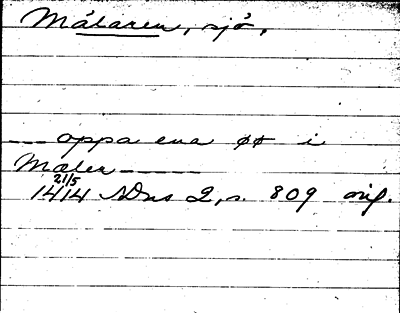 Mälaren, sjö.
--- oppa ena øø i
Mäler -----
21/5
1414 SDns 2, s. 809 orig.